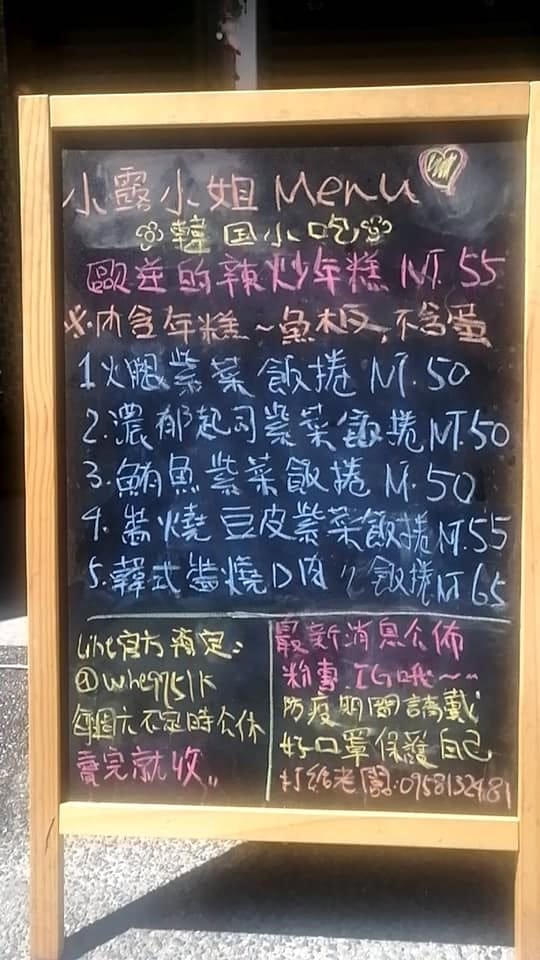 小露小姐 Menu
韓国小吃
歐逆的辣炒年糕 NT.55
※內含年糕~魚板,不含蛋
1.火腿紫菜飯捲 NT.50
2.濃郁起司紫菜飯捲 NT.50
3.鮪魚紫菜飯捲 NT.50
4.醬燒豆皮紫菜飯捲 NT.55
5.韓式醬燒 飯捲 NT 65
Line官方預定:
每週六不定時公休
賣完就收..
最新消息公佈
粉專.IG哦~~
防疫期間請戴
好口罩保護自己
打給老闆:0958132481